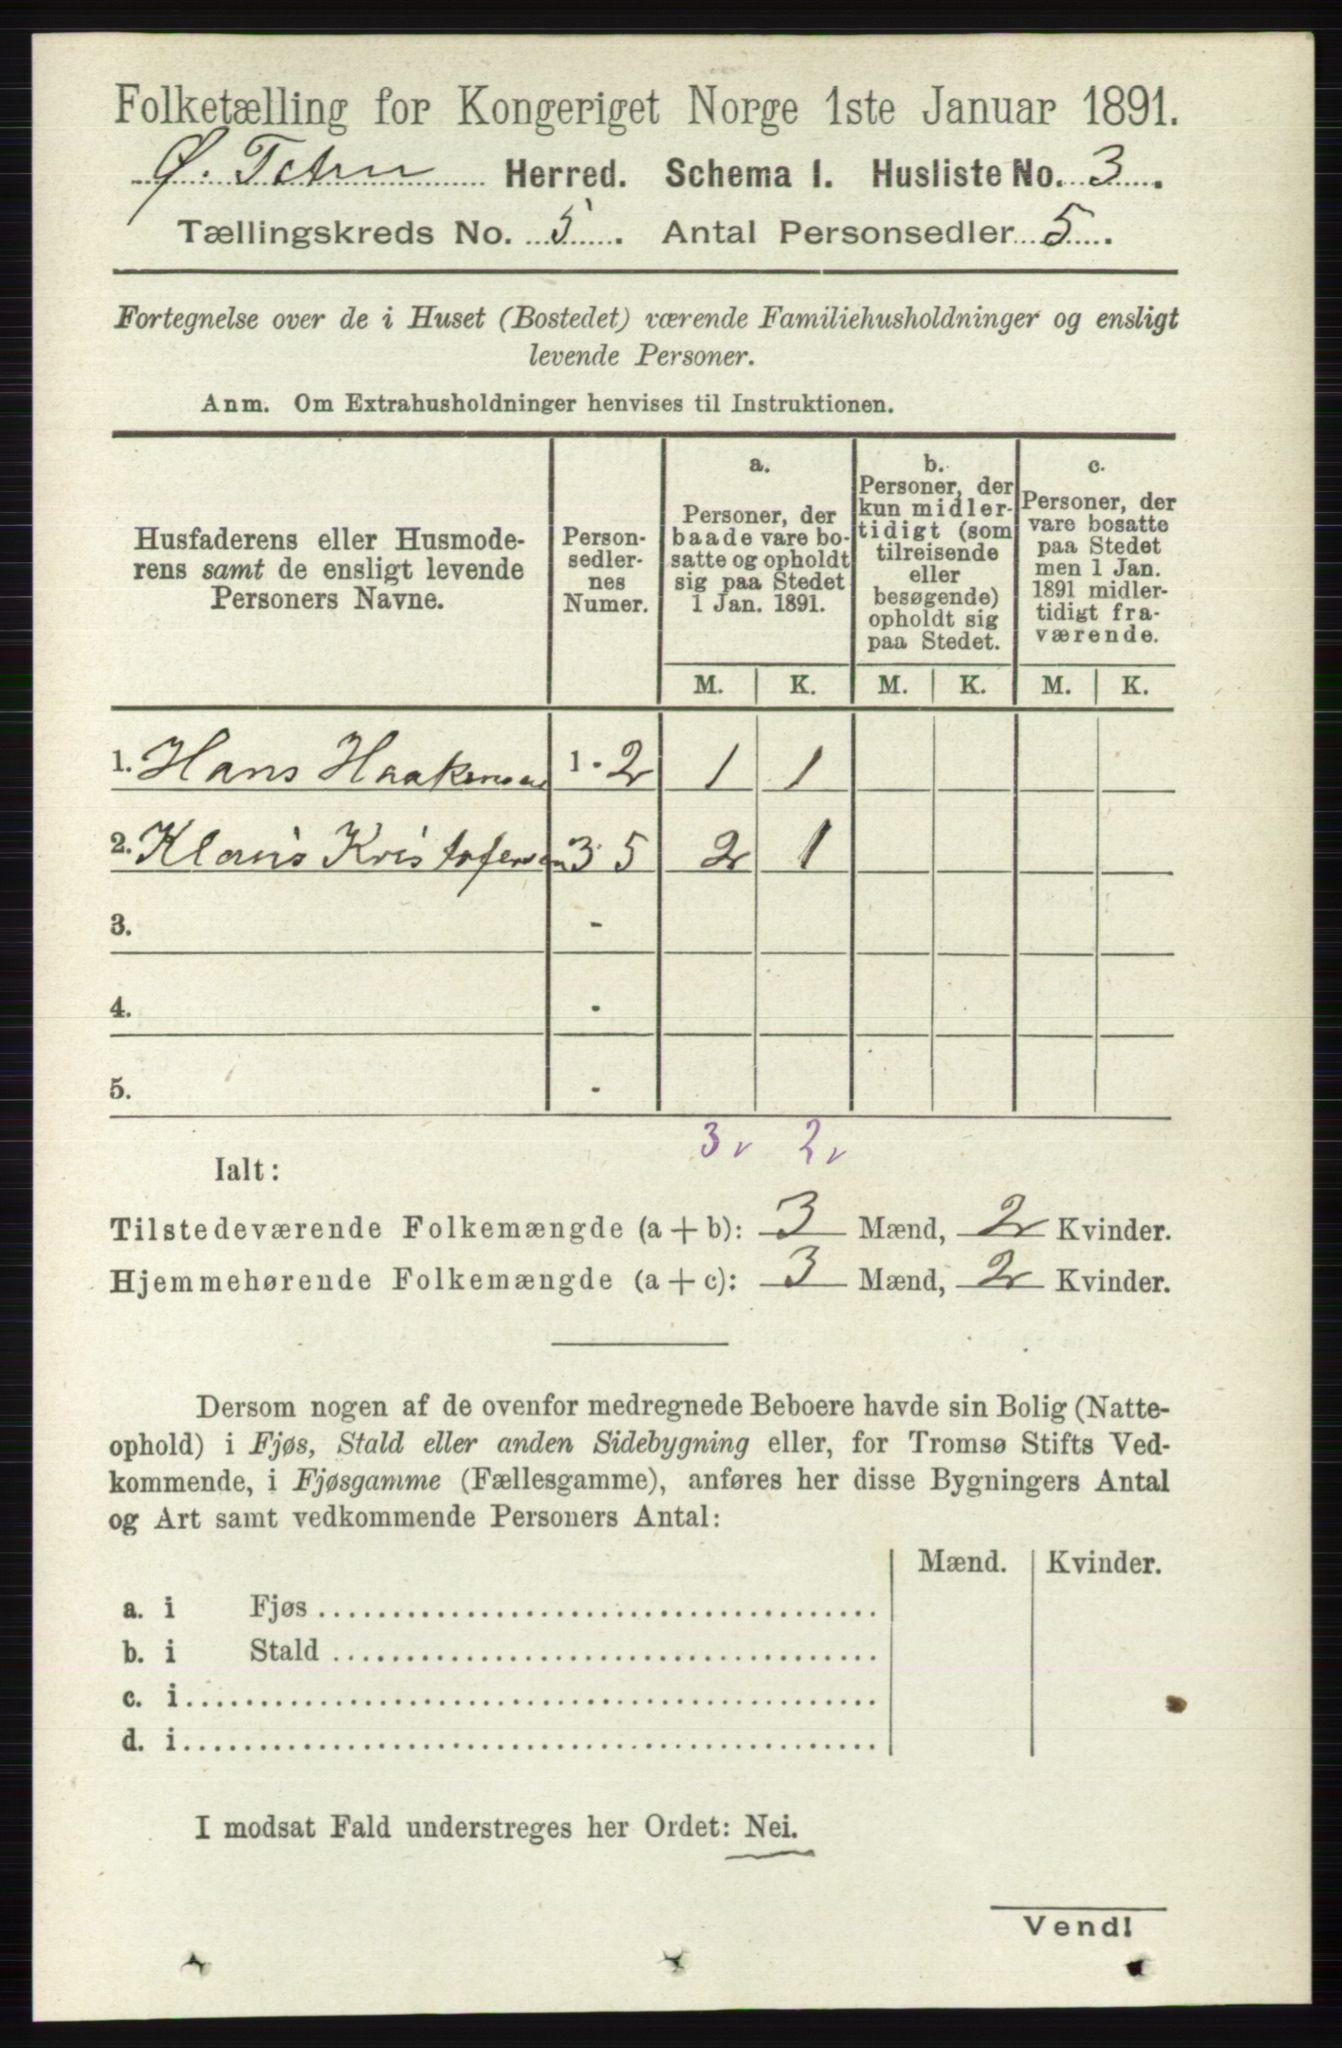 Folketælling for Kongeriget Norge 1ste Januar 1891.
Ø. Toten Herred. Schema 1. Husliste No. 3.
Tællingskreds No. 5. Antal Personsedler 5.
Fortegnelse over de i Huset (Bostedet) værende Familiehusholdninger og ensligt
levende Personer.
Anm. Om Extrahusholdninger henvises til Instruktionen.
Husfaderens eller Husmode-
rens samt de ensligt levende
Personers Navne.
Person-
sedler-
nes
Numer.
a.
Personer, der
baade vare bo-
satte og opholdt
sig paa Stedet
1 Jan. 1891.
b.
Personer, der
kun midler-
tidigt (som
tilreisende
eller
besøgende)
opholdt sig
paa Stedet.
c.
Personer, der
vare bosatte
paa Stedet
men 1 Jan.
1891 midler-
tidigt fra-
værende.
M. K. M. K. M. K.
1. Hans Haakensen 1 - 2 1 1
2. Klaus Kristofersen 3 5 2 1
3. -
4. -
5. -
3 v 2 v
Ialt:
Tilstedeværende Folkemængde (a + b): 3 Mænd, 2 Kvinder.
Hjemmehørende Folkemængde (a + c): 3 Mænd, 2 Kvinder.
Dersom nogen af de ovenfor medregnede Beboere havde sin Bolig (Natte-
ophold) i Fjøs, Stald eller anden Sidebygning eller, for Tromsø Stifts Ved-
kommende, i Fjøsgamme (Fællesgamme), anføres her disse Bygningers Antal
og Art samt vedkommende Personers Antal:
Mænd. Kvinder.
a. i Fjøs
b. i Stald
c. i
d. i
I modsat Fald understreges her Ordet: Nei.
Vend!